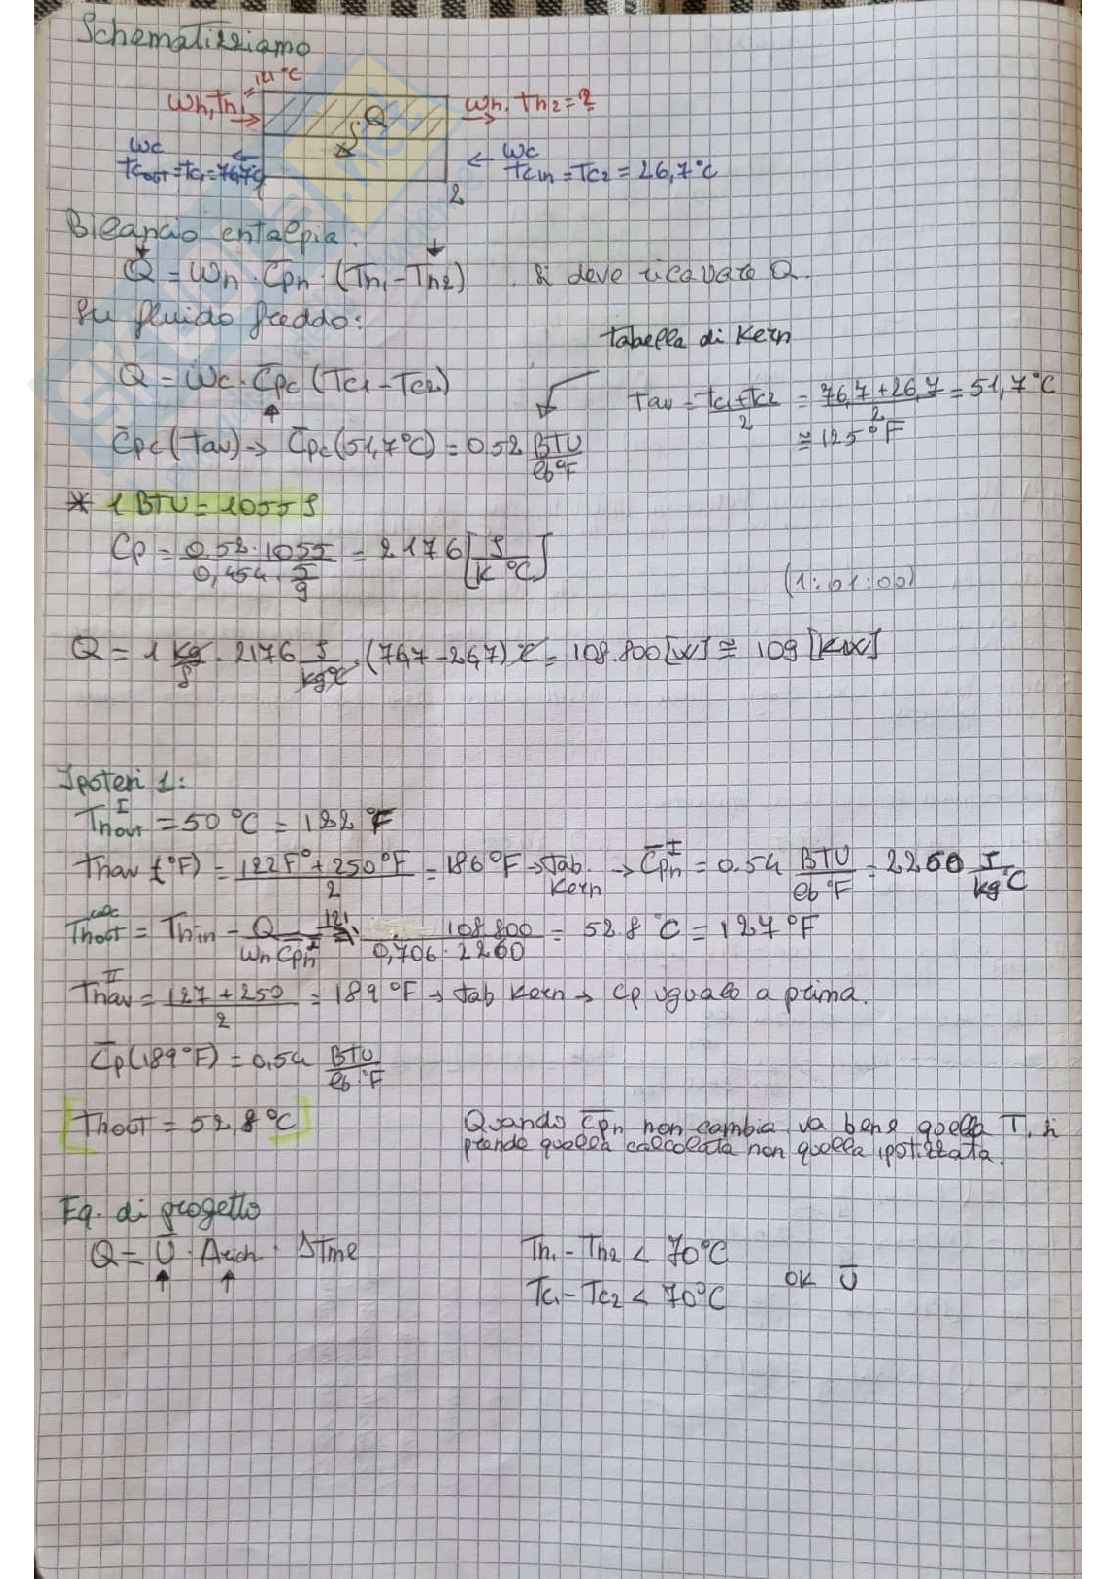 Schematizziamo
121°C
Wh, Th1
Wh, Th2 = ?
Q
Wc
Tcout = Tc1 = 76,7°C
Wc
Tcin = Tc2 = 26,7°C
2
Bilancio entalpia:
Q = Wh · Cph · (Th1 - Th2) . Si deve ricavare Q.
Su fluido freddo:
Tabella di Kern
Q = Wc · Cpc (Tc1 - Tc2)
Tav = Tc1 + Tc2 / 2 = 76,7 + 26,7 / 2 = 51,7°C
≅ 125°F
Cpc (Tav) → Cpc (51,7°C) = 0.52 BTU / lb°F
* 1 BTU = 1055 J
Cp = 0.52 · 1055 / 0,454 · 5/9 = 2176 [J / K °C]
(1:01:00)
Q = 1 kg/s · 2176 J/kg°C · (76,7 - 26,7) °C = 108.800 [W] ≅ 109 [KW]
Ipotesi 1:
Thout I = 50 °C = 122 °F
Thav (°F) = 122F° + 250°F / 2 = 186°F → tab. Kern → Cph I = 0.54 BTU / lb°F = 2260 J / kg°C
Thout calc = Thin - Q / Wh Cph I = 121 - 108.800 / 0,706 · 2260 = 52.8 °C = 127 °F
Thav II = 127 + 250 / 2 = 189 °F → tab Kern → Cp uguale a prima.
Cp (189°F) = 0,54 BTU / lb · °F
[Thout = 52,8 °C]
Quando Cph non cambia, va bene quella T, si
prende quella calcolata non quella ipotizzata.
Eq. di progetto
Q = U · Arich · ΔTml
Th1 - Th2 < 70°C
Tc1 - Tc2 < 70°C
OK U